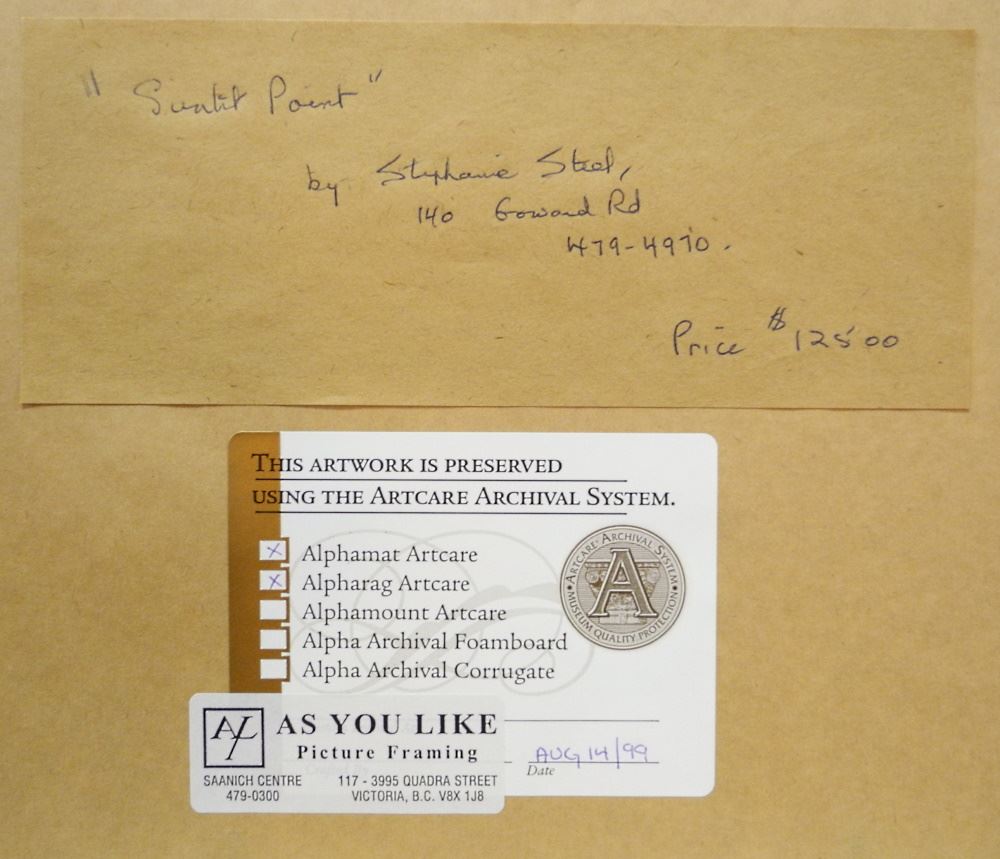 "Sunlit Point"
by Stephanie Steel,
140 Goward Rd
479-4970.
Price $125 00
THIS ARTWORK IS PRESERVED
USING THE ARTCARE ARCHIVAL SYSTEM.
X Alphamat Artcare
X Alpharag Artcare
Alphamount Artcare
Alpha Archival Foamboard
Alpha Archival Corrugate
ARTCARE ARCHIVAL SYSTEM
A
MUSEUM QUALITY PROTECTION
AYL AS YOU LIKE
Picture Framing
SAANICH CENTRE 117 - 3995 QUADRA STREET
479-0300 VICTORIA, B.C. V8X 1J8
AUG 14/99
Date